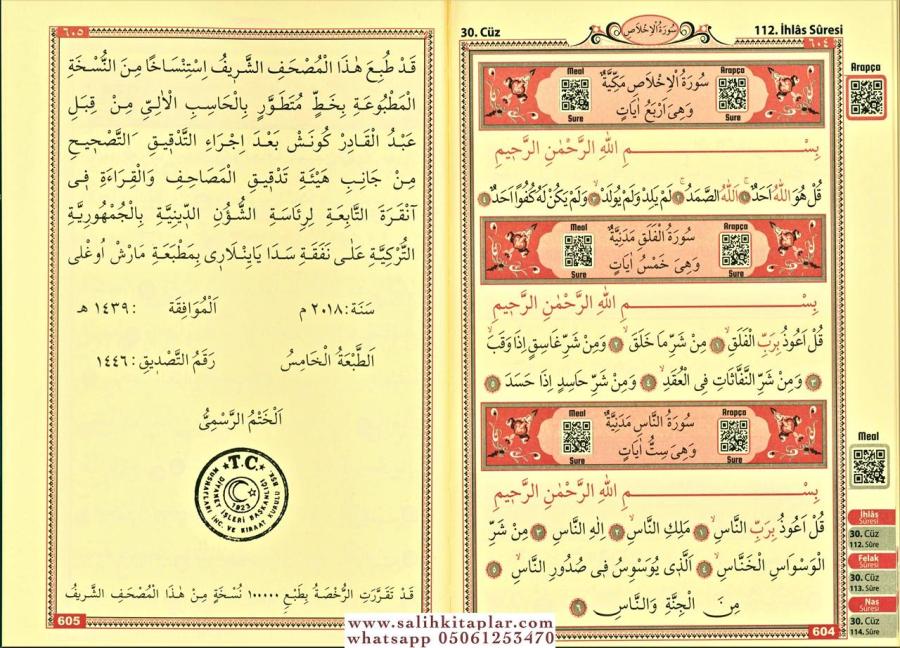 30. Cüz
سُورَةُ الْاِخْلَاصِ
112. İhlâs Sûresi
٦٠٤
Arapça
Meal
Sure
سُورَةُ الْاِخْلَاصِ مَكِّيَّةٌ
وَهِىَ اَرْبَعُ اٰيَاتٍ
Arapça
Sure
بِسْــــــــمِ اللّٰهِ الرَّحْمٰنِ الرَّح۪يمِ
قُلْ هُوَ اللّٰهُ اَحَدٌۚ ﴿١﴾ اَللّٰهُ الصَّمَدُۚ ﴿٢﴾ لَمْ يَلِدْ وَلَمْ يُولَدْۙ ﴿٣﴾ وَلَمْ يَكُنْ لَهُ كُفُوًا اَحَدٌ ﴿٤﴾
Meal
Sure
سُورَةُ الْفَلَقِ مَدَنِيَّةٌ
وَهِىَ خَمْسُ اٰيَاتٍ
Arapça
Sure
بِسْــــــــمِ اللّٰهِ الرَّحْمٰنِ الرَّح۪يمِ
قُلْ اَعُوذُ بِرَبِّ الْفَلَقِۙ ﴿١﴾ مِنْ شَرِّ مَا خَلَقَۙ ﴿٢﴾ وَمِنْ شَرِّ غَاسِقٍ اِذَا وَقَبَۙ
﴿٣﴾ وَمِنْ شَرِّ النَّفَّاثَاتِ فِى الْعُقَدِۙ ﴿٤﴾ وَمِنْ شَرِّ حَاسِدٍ اِذَا حَسَدَ ﴿٥﴾
Meal
Sure
سُورَةُ النَّاسِ مَدَنِيَّةٌ
وَهِىَ سِتُّ اٰيَاتٍ
Arapça
Sure
بِسْــــــــمِ اللّٰهِ الرَّحْمٰنِ الرَّح۪يمِ
قُلْ اَعُوذُ بِرَبِّ النَّاسِۙ ﴿١﴾ مَلِكِ النَّاسِۙ ﴿٢﴾ اِلٰهِ النَّاسِۙ ﴿٣﴾ مِنْ شَرِّ
الْوَسْوَاسِ الْخَنَّاسِۙ ﴿٤﴾ اَلَّذ۪ى يُوَسْوِسُ ف۪ى صُدُورِ النَّاسِۙ ﴿٥﴾
مِنَ الْجِنَّةِ وَالنَّاسِ ﴿٦﴾
604
Meal
İhlâs
Sûresi
30. Cüz
112. Sûre
Felak
Sûresi
30. Cüz
113. Sûre
Nas
Sûresi
30. Cüz
114. Sûre
٦٠٥
قَدْ طُبِعَ هٰذَا الْمُصْحَفُ الشَّر۪يفُ اِسْتِنْسَاخًا مِنَ النُّسْخَةِ
الْمَطْبُوعَةِ بِخَطٍّ مُتَطَوِّرٍ بِالْحَاسِبِ الْاٰلِىِّ مِنْ قِبَلِ
عَبْدُ الْقَادِرْ كُونَشْ بَعْدَ اِجْرَاءِ التَّدْق۪يقِ التَّصْح۪يحِ
مِنْ جَانِبِ هَيْئَةِ تَدْق۪يقِ الْمَصَاحِفِ وَالْقِرَاءَةِ ف۪ى
اَنْقَرَةَ التَّابِعَةِ لِرِئَاسَةِ الشُّؤُنِ الدّ۪ينِيَّةِ بِالْجُمْهُورِيَّةِ
التُّرْكِيَّةِ عَلٰى نَفَقَةِ سَدَا يَايِنْلَار۪ى بِمَطْبَعَةِ مَارْشْ اُوغْلى
سَنَة: ٢٠١٨ م اَلْمُوَافِقَة : ١٤٣٩ هـ
اَلطَّبْعَةُ الْخَامِسُ رَقْمُ التَّصْد۪يقِ: ١٤٤٦
اَلْخَتْمُ الرَّسْمِىُّ
T.C.
BŞK.
DİYANET İŞLERİ BAŞKANLIĞI
MUSHAFLARI İNC. VE KIRAAT KURULU
1923
قَدْ تَقَرَّرَتِ الرُّخْصَةُ بِطَبْعِ ١٠٠٠٠٠ نُسْخَةٍ مِنْ هٰذَا الْمُصْحَفِ الشَّر۪يفُ
605
www.salihkitaplar.com
whatsapp 05061253470